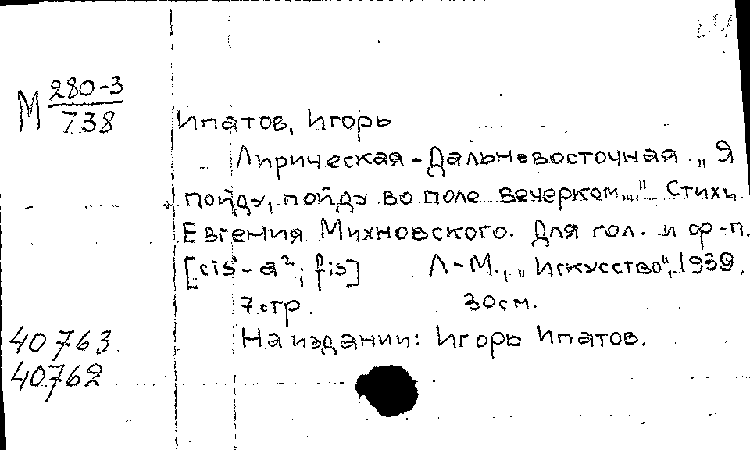 М 280-3
738
Ипатов, Игорь
Лирическая-Дальневосточная. „Я
пойду, пойду во поле вечерком..." Стихи
Евгения Михновского. Для гол. и ф-п.
[cis - a²; fis] Л-М., „Искусство", 1939.
7 стр. 30см.
На издании: Игорь Ипатов.
40763
40762